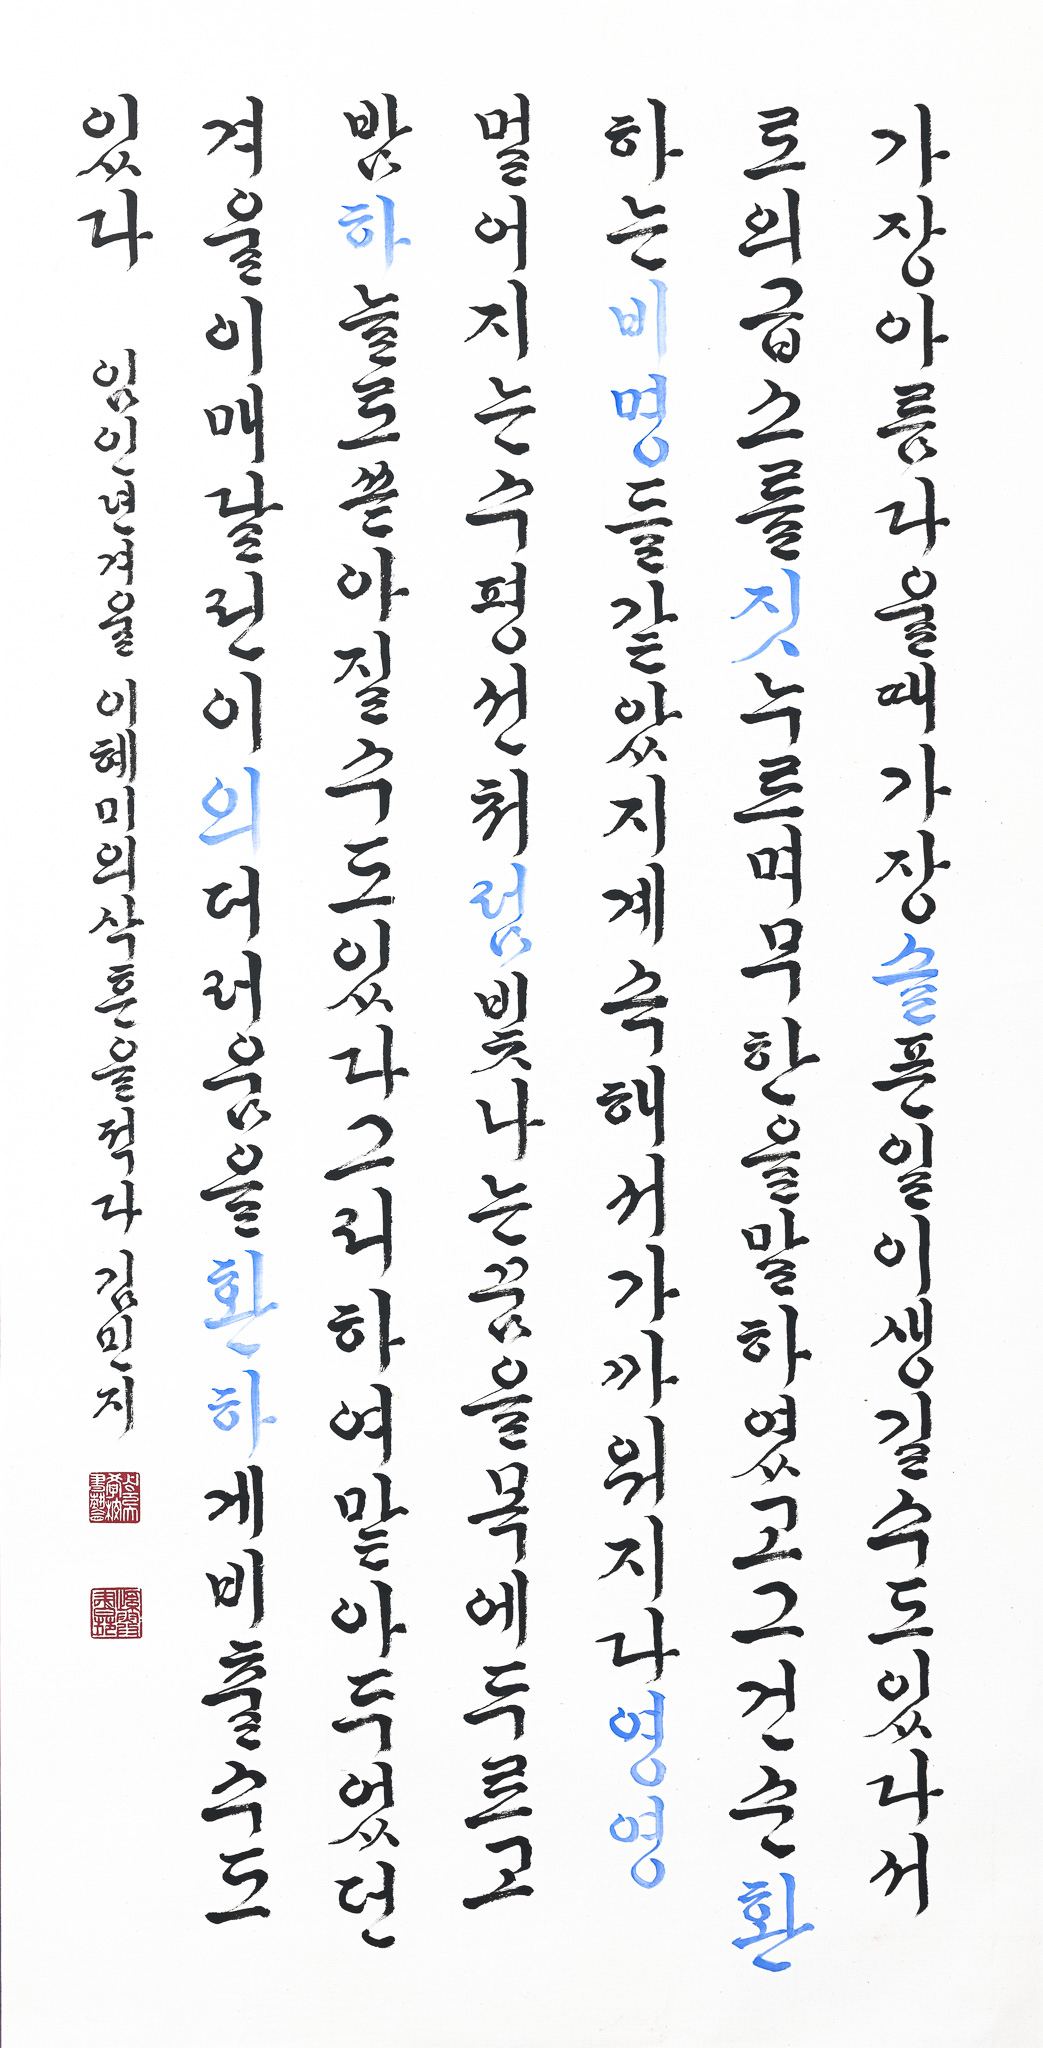 가장아름다울때가장슬픈일이생길수도있다서
로의급소를짓누르며무한을말하였고그건순환
하는비명들같았지계속해서가까워지다영영
멀어지는수평선처럼빛나는꿈을목에두르고
밤하늘로쏟아질수도있다그리하여맡아두었던
겨울이매달린이의더러움을환하게비출수도
있다 임인년겨울 이혜미의삭흔을적다 김민지